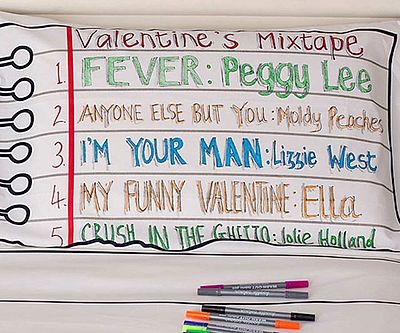 Valentine's Mixtape
1. FEVER: Peggy Lee
2. ANYONE ELSE BUT YOU: Moldy Peaches
3. I'M YOUR MAN: Lizzie West
4. MY FUNNY VALENTINE: Ella
5 CRUSH IN THE GHETTO: Jolie Holland